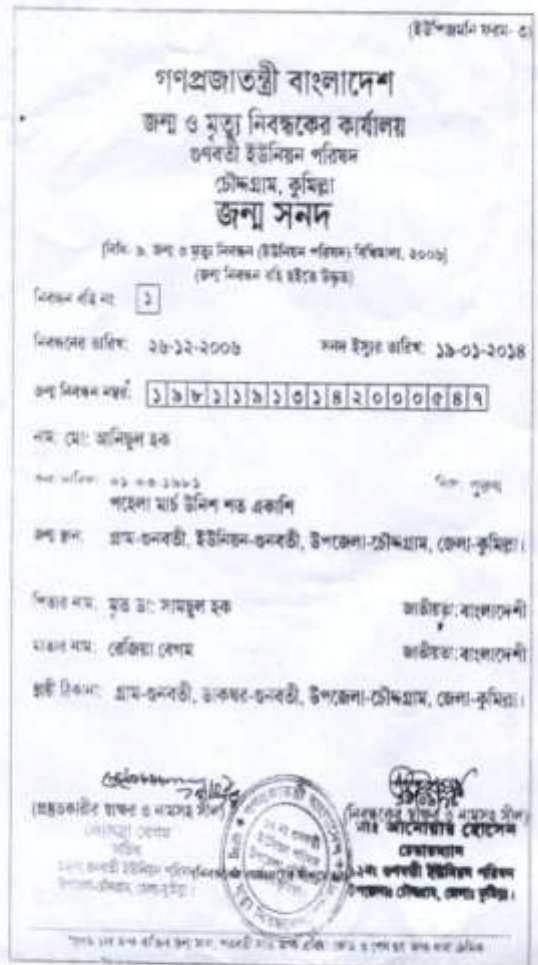 (ইউপিজমনি ফরম- ৩)
গণপ্রজাতন্ত্রী বাংলাদেশ
জন্ম ও মৃত্যু নিবন্ধকের কার্যালয়
গুণবতী ইউনিয়ন পরিষদ
চৌদ্দগ্রাম, কুমিল্লা
জন্ম সনদ
[বিধি- ৯, জন্ম ও মৃত্যু নিবন্ধন (ইউনিয়ন পরিষদ) বিধিমালা, ২০০৬]
(জন্ম নিবন্ধন বহি হইতে উদ্ধৃত)
নিবন্ধন বহি নং ১
নিবন্ধনের তারিখ: ২৬-১২-২০০৬ সনদ ইস্যুর তারিখ: ১৯-০১-২০১৪
জন্ম নিবন্ধন নম্বর: ১৯৮১১৯১৩১৪২০০০৫৪৭
নাম: মো: আনিছুল হক
জন্ম তারিখ: ০১-০৩-১৯৮১ লিঙ্গ: পুরুষ
পহেলা মার্চ উনিশ শত একাশি
জন্ম স্থান: গ্রাম-গুনবতী, ইউনিয়ন-গুনবতী, উপজেলা-চৌদ্দগ্রাম, জেলা-কুমিল্লা।
পিতার নাম: মৃত ডা: সামছুল হক জাতীয়তা: বাংলাদেশী
মাতার নাম: রেজিয়া বেগম জাতীয়তা: বাংলাদেশী
স্থায়ী ঠিকানা: গ্রাম-গুনবতী, ডাকঘর-গুনবতী, উপজেলা-চৌদ্দগ্রাম, জেলা-কুমিল্লা।
(প্রস্তুতকারীর স্বাক্ষর ও নামসহ সীল) (নিবন্ধকের স্বাক্ষর ও নামসহ সীল)
বেগম মোঃ আনোয়ার হোসেন
সচিব চেয়ারম্যান
১২নং গুনবতী ইউনিয়ন পরিষদ ১২নং গুনবতী ইউনিয়ন পরিষদ
উপজেলা-চৌদ্দগ্রাম, জেলা-কুমিল্লা। উপজেলাঃ চৌদ্দগ্রাম, জেলাঃ কুমিল্লা।